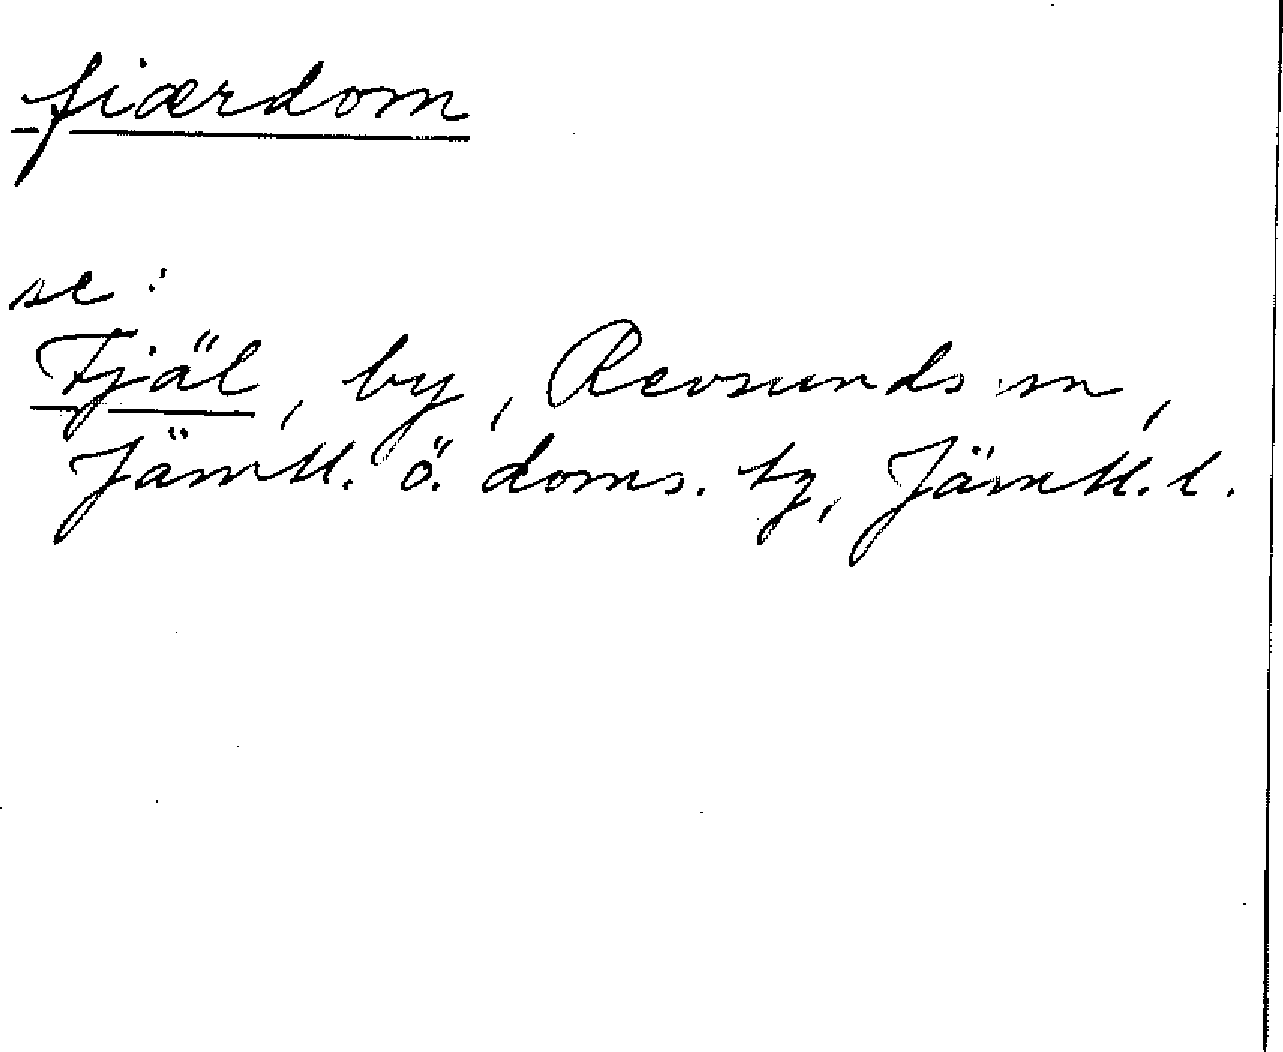 fiærdom
se:
Fjäl, by, Revsunds sn,
Jämtl. ö. doms. tg, Jämtl. l.